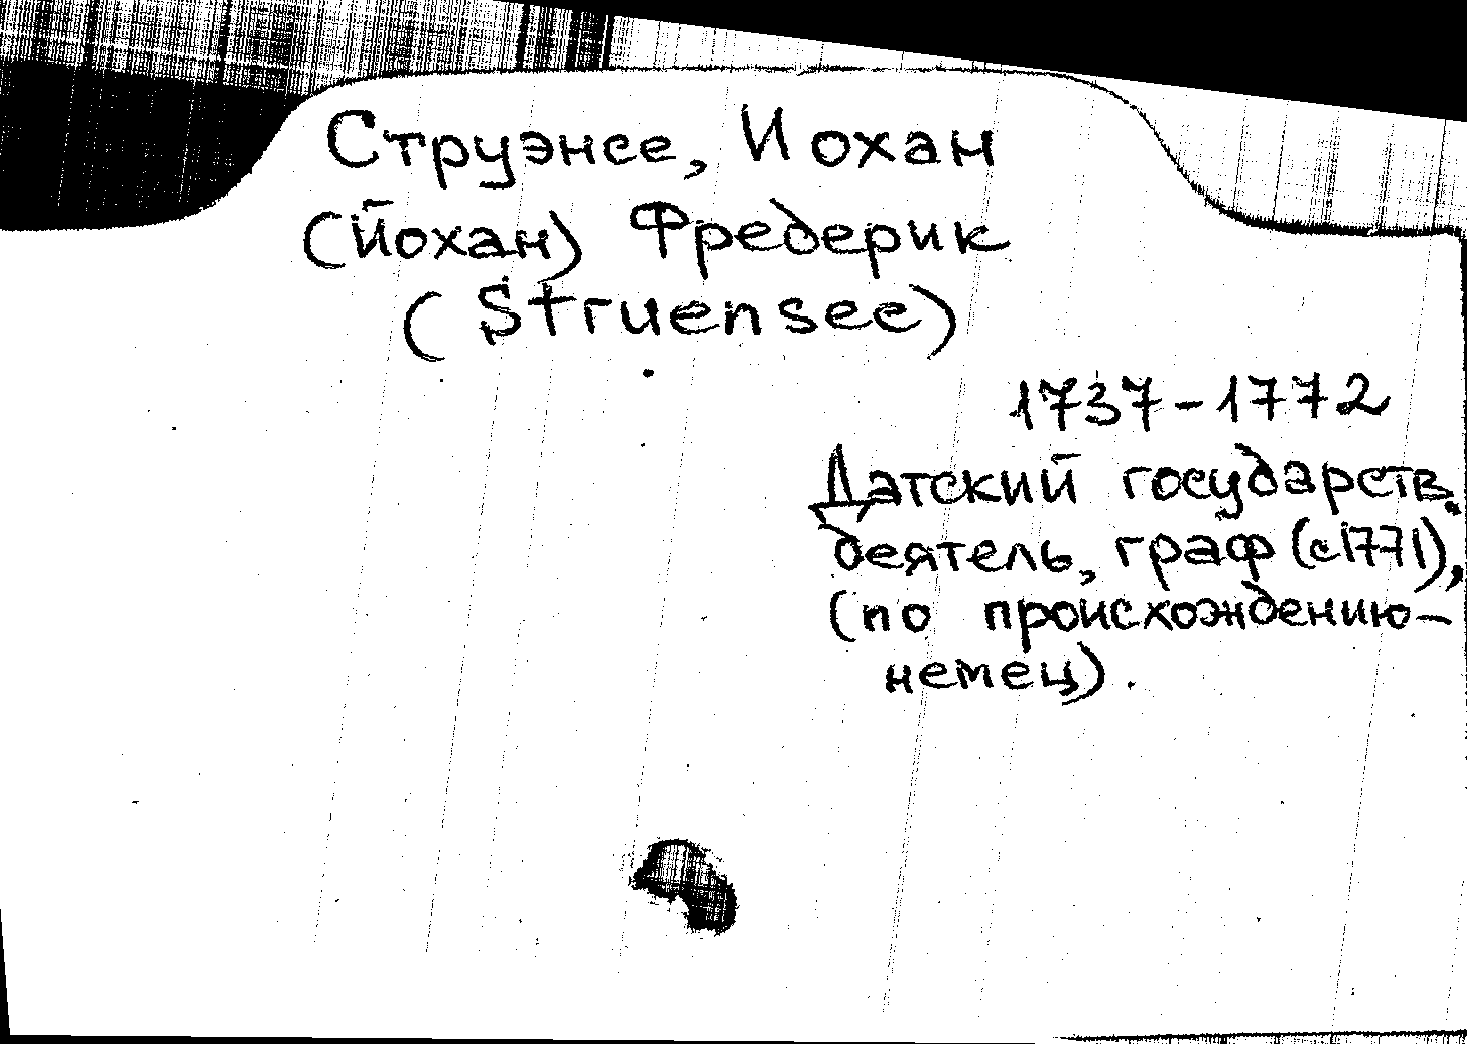 Струэнсе, Иохан
(Йохан) Фредерик
(Struensee)
1737-1772
Датский государств.
деятель, граф (с 1771),
(по происхождению-
немец).